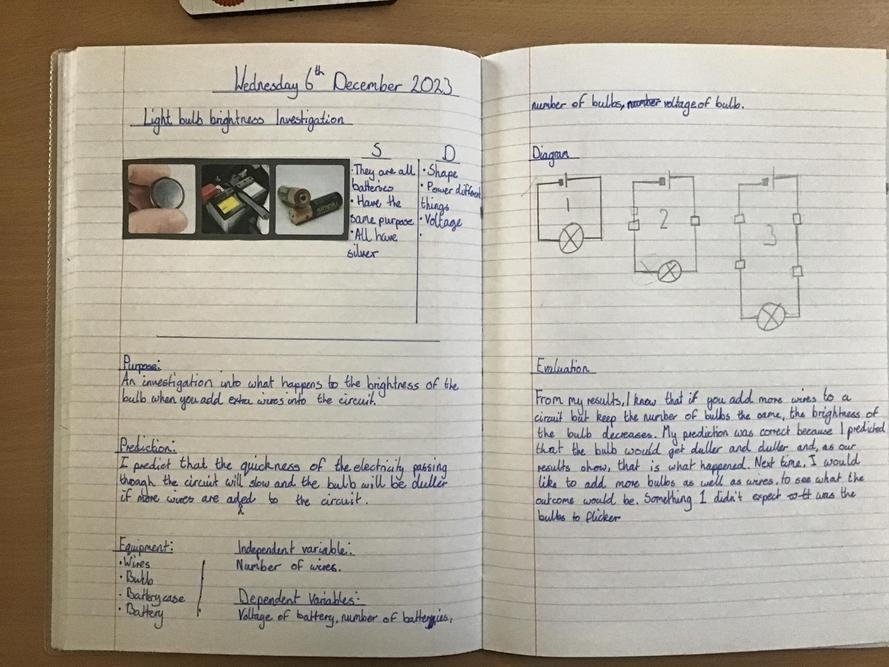 Wednesday 6th December 2023
Light bulb brightness Investigation
S
• They are all
batteries
• Have the
same purpose
• All have
silver
D
• Shape
• Power different
things
• Voltage
•
Purpose:
An investigation into what happens to the brightness of the
bulb when you add extra wires into the circuit.
Prediction:
I predict that the quickness of the electricity passing
though the circuit will slow and the bulb will be duller
if more wires are added to the circuit.
Equipment:
• Wires
• Bulb
• Battery case
• Battery
Independent variable:
Number of wires.
Dependent Variables:
Voltage of battery, number of batteries,
number of bulbs, number voltage of bulb.
Diagram
1
2
3
Evaluation
From my results, I know that if you add more wires to a
circuit but keep the number of bulbs the same, the brightness of
the bulb decreases. My prediction was correct because I predicted
that the bulb would get duller and duller and, as our
results show, that is what happened. Next time, I would
like to add more bulbs as well as wires, to see what the
outcome would be. Something I didn't expect was the
bulbs to flicker